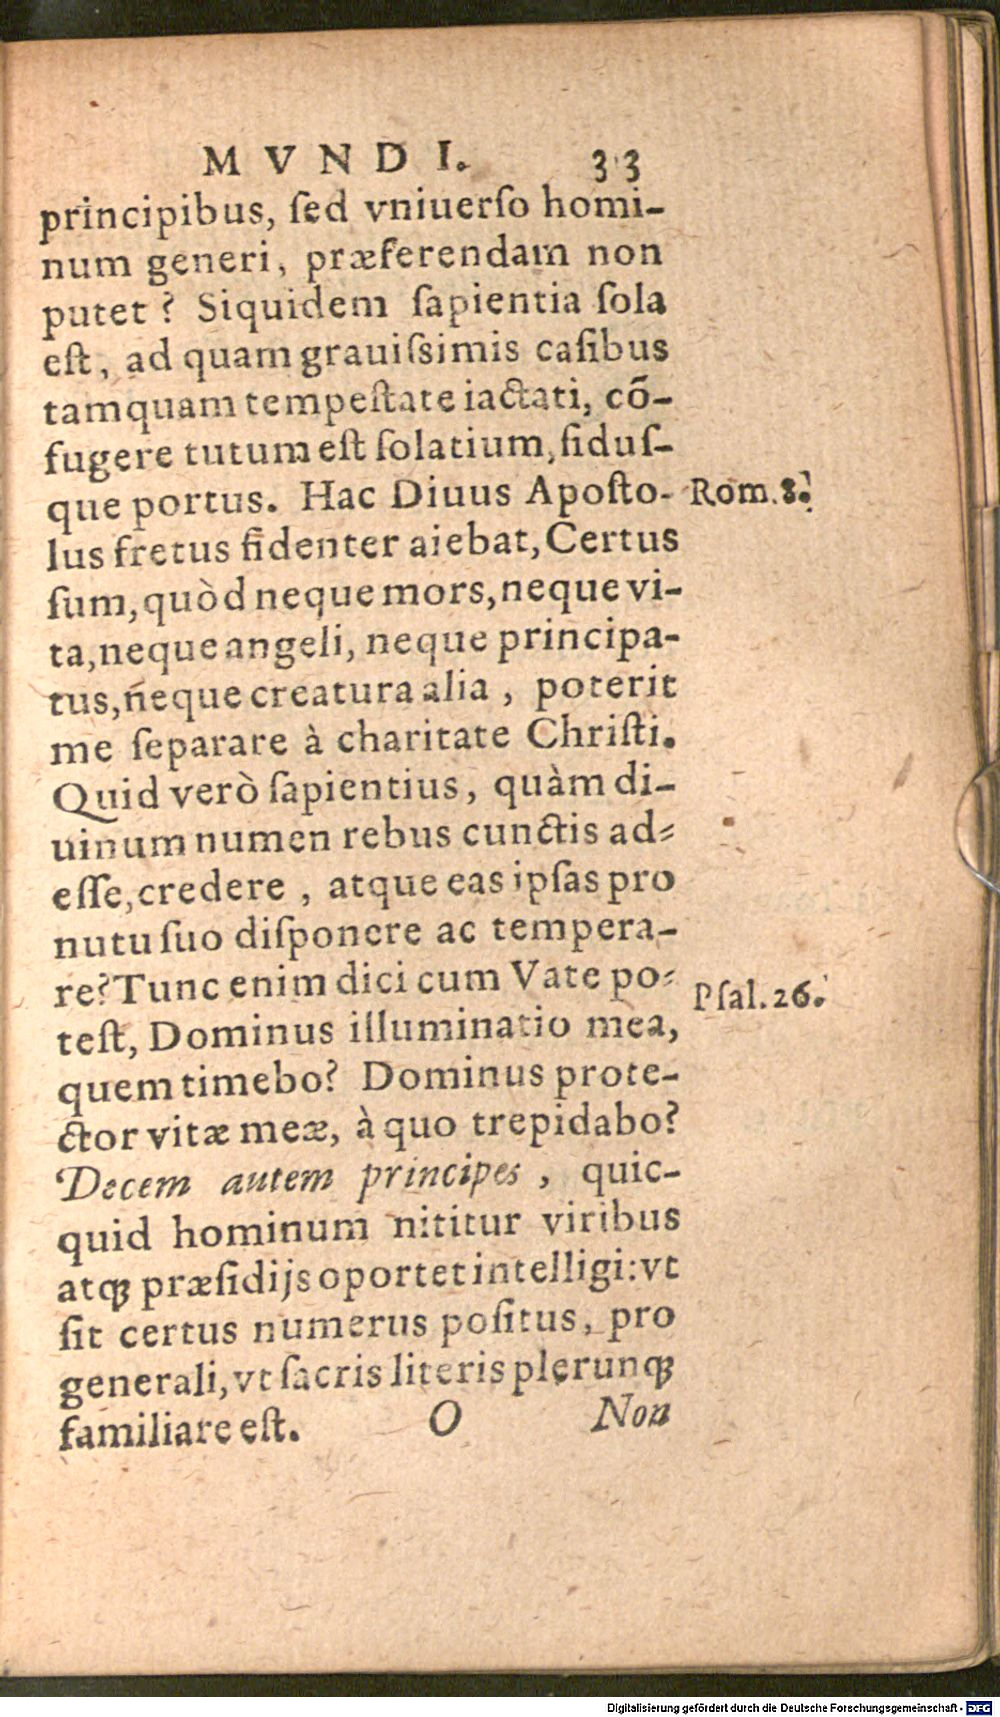 MVNDI. 33
principibus, ſed vniuerſo homi-
num generi, præferendam non
putet? Siquidem ſapientia ſola
eſt, ad quam grauiſsimis caſibus
tamquam tempeſtate iactati, cõ-
fugere tutum eſt ſolatium, fiduſ-
que portus. Hac Diuus Apoſto- Rom. 8.
lus fretus fidenter aiebat, Certus
ſum, quòd neque mors, neque vi-
ta, neque angeli, neque principa-
tus, neque creatura alia, poterit
me ſeparare à charitate Chriſti.
Quid verò ſapientius, quàm di-
uinum numen rebus cunctis ad-
eſſe, credere, atque eas ipſas pro
nutu ſuo diſponere ac tempera-
re? Tunc enim dici cum Vate po- Pſal. 26.
teſt, Dominus illuminatio mea,
quem timebo? Dominus prote-
ctor vitæ meæ, à quo trepidabo?
Decem autem principes, quic-
quid hominum nititur viribus
atqꝫ præſidijs oportet intelligi: vt
ſit certus numerus poſitus, pro
generali, vt ſacris literis plerunqꝫ
familiare eſt. O Non
Digitalisierung gefördert durch die Deutsche Forschungsgemeinschaft - DFG